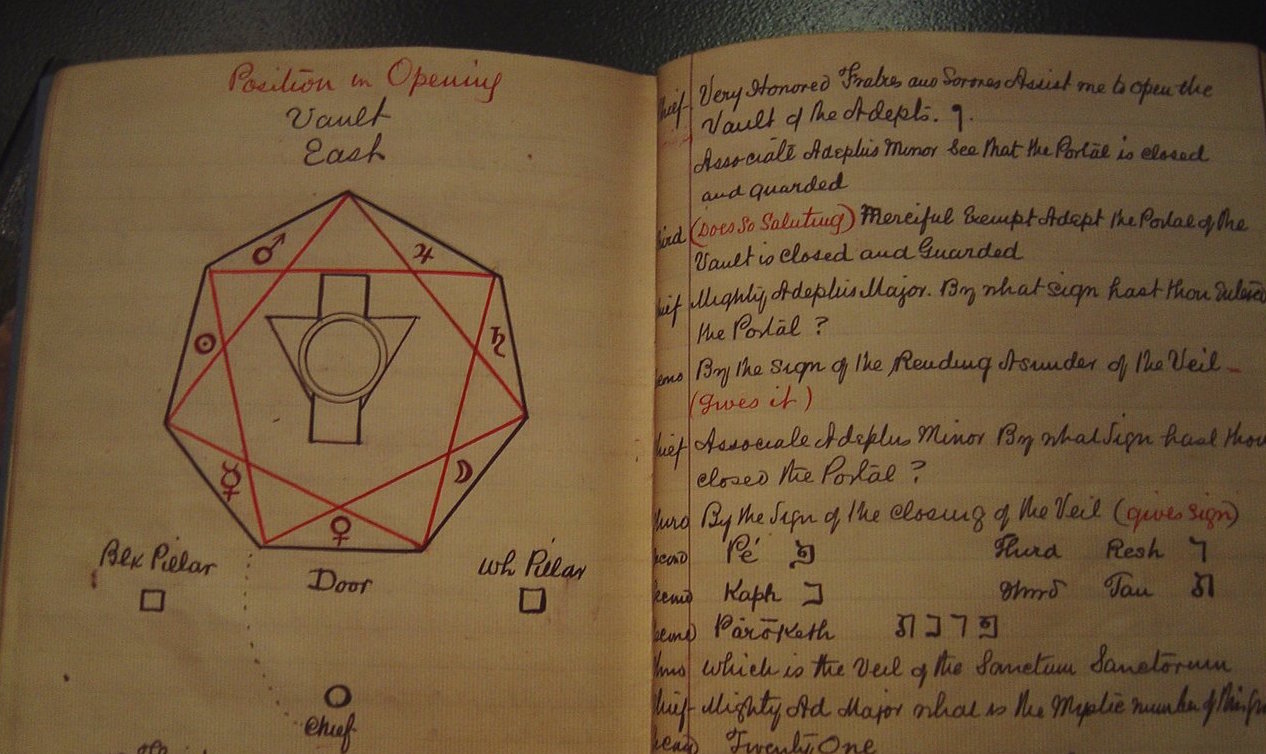 Position in Opening
Vault
East
♂ ♃
☉ ♄
☿ ☽
♀
Blk Pillar
Door
Wh Pillar
Chief
hief Very Honored Fratres and Sorores Assist me to open the
Vault of the Adepts. 1.
Associate Adeptus Minor See that the Portal is closed
and guarded
hird (Does So Saluting) Merciful Exempt Adept the Portal of the
Vault is closed and Guarded
hief Mighty Adeptus Major. By what sign hast thou
the Portal ?
By the Sign of the Rending Asunder of the Veil –
(Gives it)
hief Associate Adeptus Minor By what Sign hast thou
closed the Portal ?
By the Sign of the closing of the Veil (gives sign)
econd Pé פ Third Resh ר
econd Kaph כ Third Tau ת
econd Pārōketh ת כ ר פ
which is the Veil of the Sanctum Sanctorum
hief Mighty Ad Major what is the Mystic number of this
Twenty One